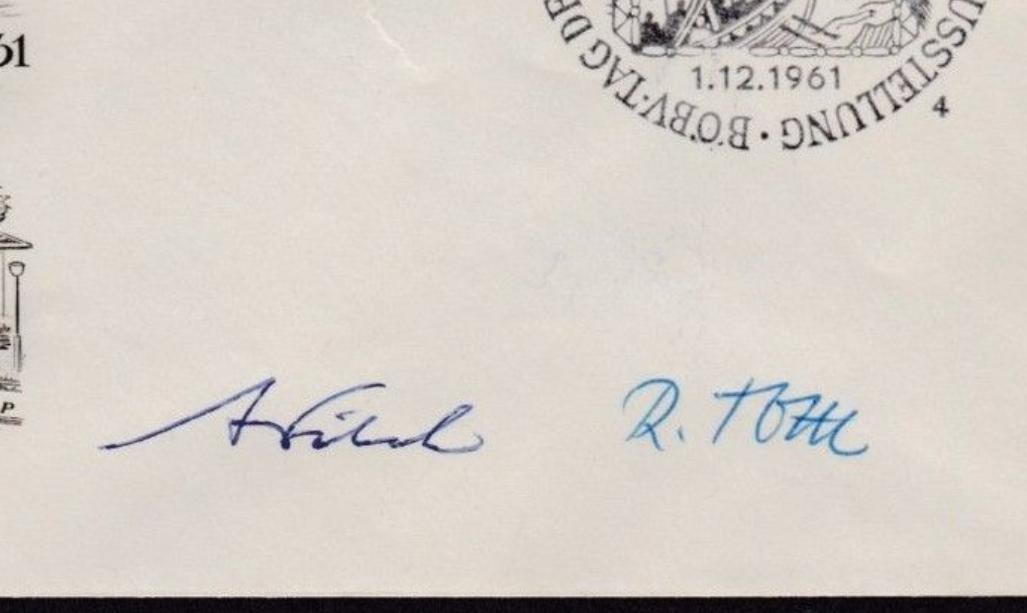 61
TAG DE
USSTELLUNG · BÖBV ·
1.12.1961
4
P
R. Toth